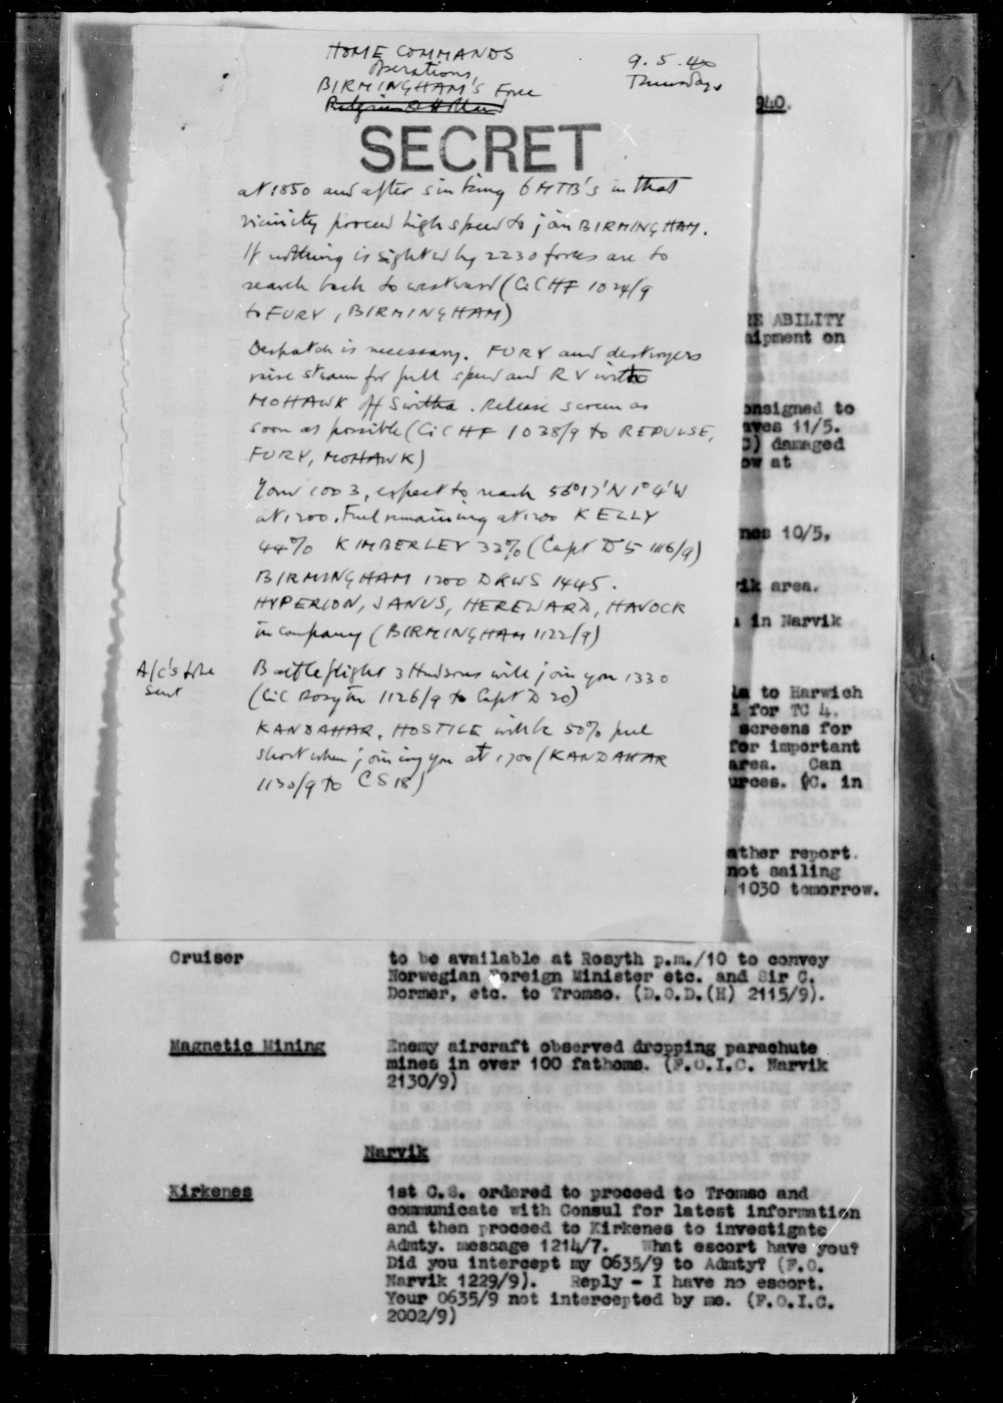 HOME COMMANDS
Operations
BIRMINGHAM's Force
9.5.40
Thursday
SECRET
at 1850 and after sinking 6 MTB's in that
vicinity proceed high speed to join BIRMINGHAM.
If nothing is sighted by 2230 forces are to
search back to westward (CiCHF 1024/9
to FURY, BIRMINGHAM)
Despatch is necessary. FURY and destroyers
raise steam for full speed and RV with
MOHAWK off Switha. Release screen as
soon as possible (CiCHF 1038/9 to REPULSE,
FURY, MOHAWK)
Your 1003, expect to reach 56°17'N 1°4'W
at 1200. Fuel remaining at 1200 KELLY
44% KIMBERLEY 32% (Capt D 5 1116/9)
BIRMINGHAM 1200 DKWS 1445.
HYPERION, JANUS, HEREWARD, HAVOCK
in company (BIRMINGHAM 1122/9)
A/c's to be
sent
Battleflight 3 Hudsons will join you 1330
(CiC Rosyth 1126/9 to Capt D 20)
KANDAHAR, HOSTILE will be 50% fuel
short when joining you at 1700 (KANDAHAR
1130/9 to CS18)
940.
RE ABILITY
ipment on
onsigned to
aves 11/5.
) damaged
ow at
nes 10/5.
ik area.
in Narvik
to Harwich
for TC 4.
screens for
for important
area. Can
urces. C. in
ather report.
not sailing
1030 tomorrow.
Cruiser
to be available at Rosyth p.m./10 to convey
Norwegian Foreign Minister etc. and Sir C.
Dormer, etc. to Tromso. (D.O.D.(H) 2115/9).
Magnetic Mining
Enemy aircraft observed dropping parachute
mines in over 100 fathoms. (F.O.I.C. Narvik
2130/9)
Narvik
Kirkenes
1st C.S. ordered to proceed to Tromso and
communicate with Consul for latest information
and then proceed to Kirkenes to investigate
Admty. message 1214/7. What escort have you?
Did you intercept my 0635/9 to Admty? (F.O.
Narvik 1229/9). Reply - I have no escort.
Your 0635/9 not intercepted by me. (F.O.I.C.
2002/9)